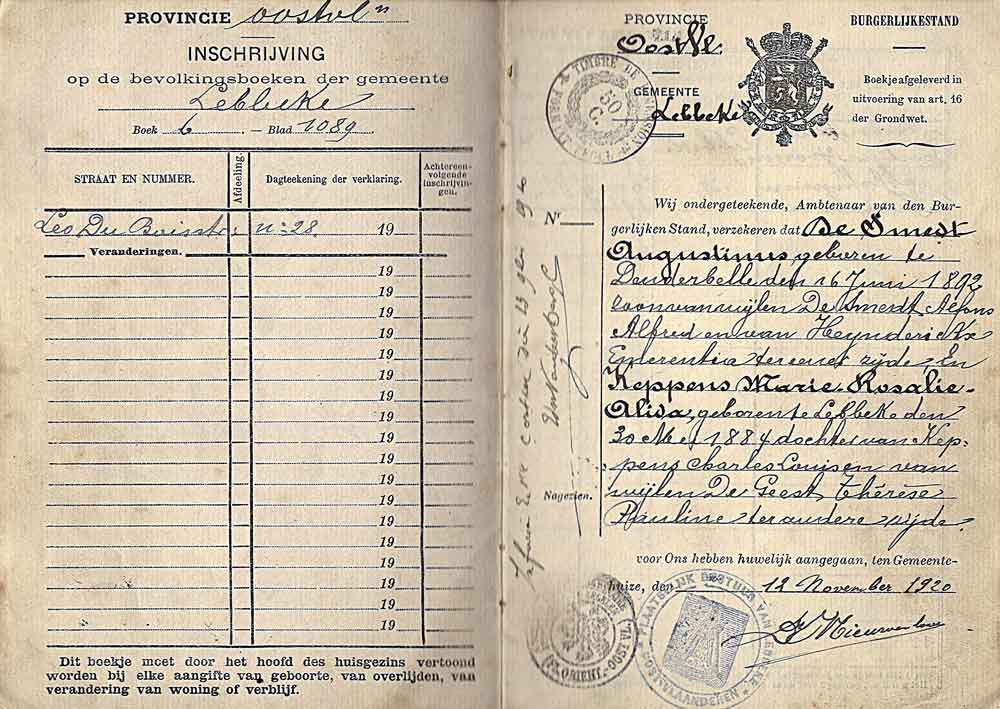 PROVINCIE Oostvl^n
INSCHRIJVING
op de bevolkingsboeken der gemeente
Lebbeke
Boek 6. — Blad 1089
STRAAT EN NUMMER.
Afdeeling.
Dagteekening der verklaring.
Achtereen-
volgende
inschrijvin-
gen.
Leo Du Boisstr: n: 28. 19
Veranderingen.
19
19
19
19
19
19
19
19
19
19
19
19
19
19
19
19
19
19
Dit boekje moet door het hoofd des huisgezins vertoond
worden bij elke aangifte van geboorte, van overlijden, van
verandering van woning of verblijf.
PROVINCIE
Oostvl
GEMEENTE
Lebbeke
TIMBRE DE
50
C.
BURGERLIJKESTAND
Boekje afgeleverd in
uitvoering van art. 16
der Grondwet.
N^r
Nagezien.
Wij ondergeteekende, Ambtenaar van den Bur-
gerlijken Stand, verzekeren dat De Smedt
Augustinus geboren te
Denderbelle den 16 Juni 1892
zoon van wijlen De Smedt Alfons
Alfred en van Heynderickx
Emerentia ter eener zijde, En
Keppens Marie-Rosalie-
Alida, geboren te Lebbeke den
30 Mei 1884 dochter van Kep-
pens Charles Louis en van
wijlen De Geest Thérèse
Pauline ter andere zijde
voor Ons hebben huwelijk aangegaan, ten Gemeente-
huize, den 12 November 1920
PLAATSELIJK BESTUUR VAN LEBBEKE
OOSTVLAANDEREN